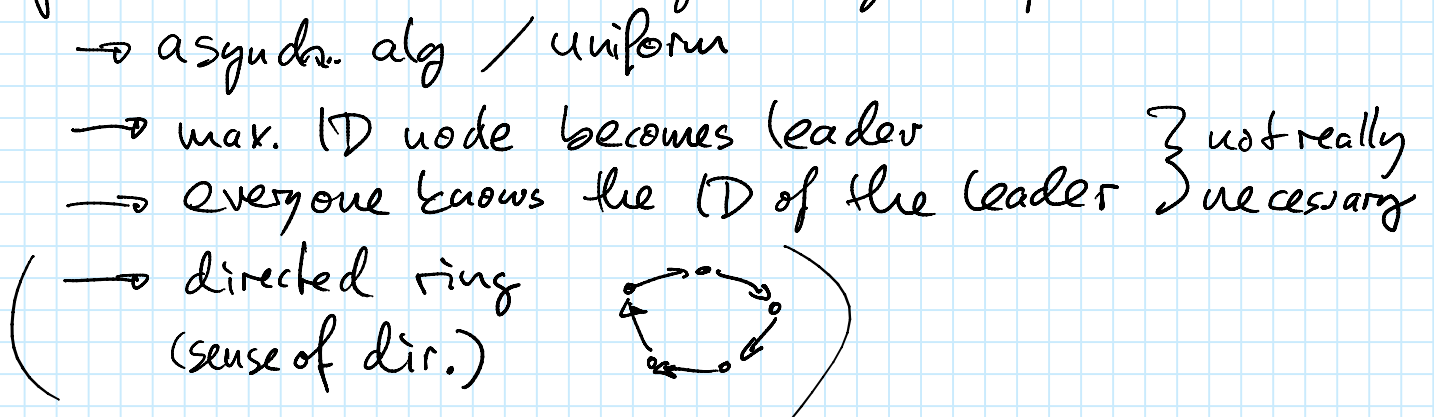 → asynchr. alg / uniform
→ max. ID node becomes leader } not really
→ everyone knows the ID of the leader } necessary
( → directed ring
(sense of dir.) )